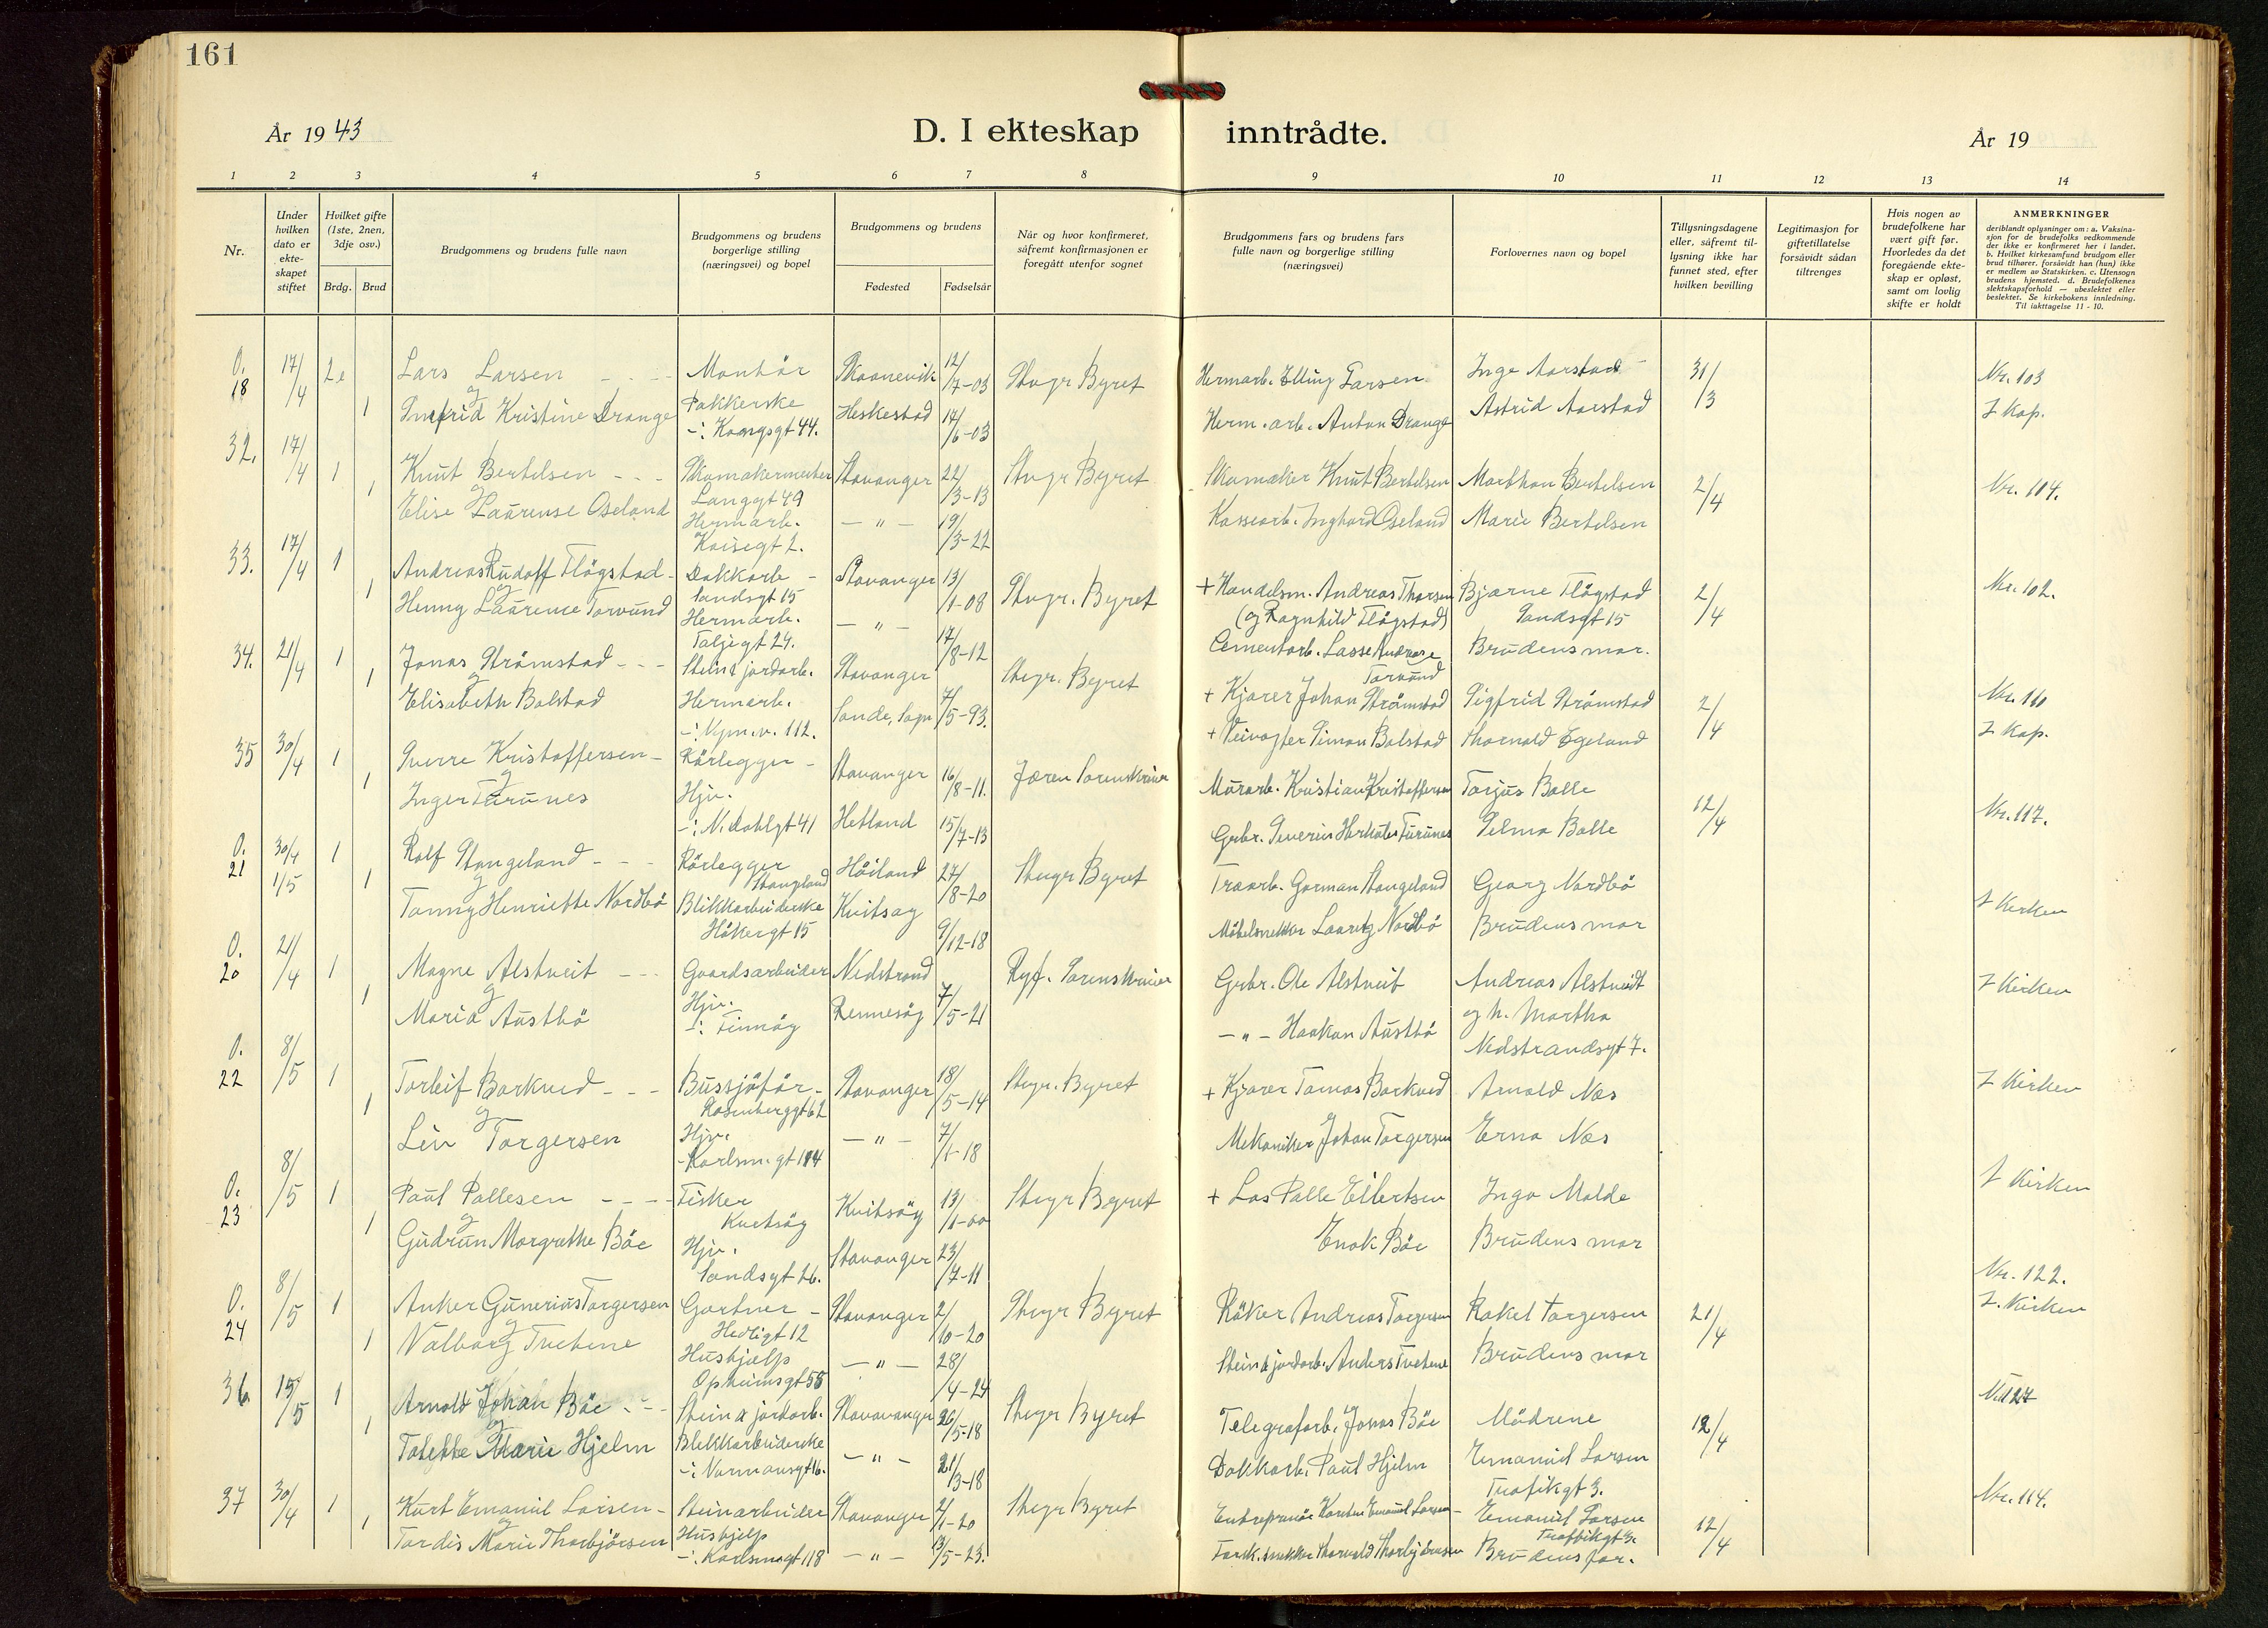 161
År 1943
D. I ekteskap inntrådte.
År 19
1 2 3 4 5 6 7 8 9 10 11 12 13 14
Nr.
Under hvilken dato er ekteskapet stiftet
Hvilket gifte (1ste, 2nen, 3dje osv.)
Brdg. Brud
Brudgommens og brudens fulle navn
Brudgommens og brudens borgerlige stilling (næringsvei) og bopel
Brudgommens og brudens
Fødested
Fødselsår
Når og hvor konfirmeret, såfremt konfirmasjonen er foregått utenfor sognet
Brudgommens fars og brudens fars fulle navn og borgerlige stilling (næringsvei)
Forlovernes navn og bopel
Tillysningsdagene eller, såfremt tillysning ikke har funnet sted, efter hvilken bevilling
Legitimasjon for giftetillatelse forsåvidt sådan tiltrenges
Hvis nogen av brudefolkene har vært gift før. Hvorledes da det foregående ekteskap er opløst, samt om lovlig skifte er holdt
ANMERKNINGER
deriblandt oplysninger om: a. Vaksinasjon for de brudefolks vedkommende der ikke er konfirmeret her i landet. b. Hvilket kirkesamfund brudgom eller brud tilhører, forsåvidt han (hun) ikke er medlem av Statskirken. c. Utensogn brudens hjemsted. d. Brudefolkenes slektskapsforhold — ubeslektet eller beslektet. Se kirkebokens innledning. Til iakttagelse 11 - 10.
O. 18 17/4 2. Lars Larsen Montör Skaanevik 12/7-03 Stvgr Byret Hermarb. Elling Larsen Inge Aarstad 31/3 Nr. 103
og
1 Ingfrid Kristine Drange Pakkerske Heskestad 17/6-03 Herm. arb. Anton Drange Astrid Aarstad I Kap.
-: Kongsgt 44.
32. 17/4 1 Knut Bertelsen Skomakermester Stavanger 22/3-13 Stvgr Byret Skomaker Knut Bertelsen Marthon Bertelsen 2/4 Nr. 114.
og Langgt 49
1 Elise Laurense Oseland Hermarb. — " — 19/3-22 Kassearb. Inghard Oseland Marie Bertelsen
Kaisegt 2.
33. 17/4 1 Andreas Rudolf Flögstad Dokkarb Stavanger 13/1-08 Stvgr. Byret + Handelsm. Andreas Thorsen Bjarne Flögstad 2/4 Nr. 102.
og Sandsgt 15 (og Ragnhild Flögstad) Sandsgt 15
1 Henny Laurense Torvund Hermarb. — " — 17/8-12 Cementarb. Lasse Andreas Torvund Brudens mor.
Taljegt 24.
34. 21/4 1 Jonas Strömstad Stein & jordarb. Stavanger Stvgr. Byret + Kjører Johan Strömstad Sigfrid Strömstad 2/4 Nr. 110
og
1 Elisabeth Bolstad Hermarb. Sande, Sogn 7/5-93. + Veivogter Simon Bolstad Thorvald Egeland I Kap.
-: Nym.v. 112.
35 30/4 1 Sverre Kristoffersen Rörlegger Stavanger 16/8-11. Jæren Sorenskriver Murarb. Kristian Kristoffersen Torjus Balle 12/4 Nr. 117.
og
1 Inger Tunes Hjv. Hetland 15/7-13 Grbr. Severin Tunes Selma Balle
-: N. Dahlsgt 41
O. 21 30/4 1/5 1 Rolf Stangeland Rörlegger Höiland 27/8-20 Stvgr Byret Træarb. Gorman Stangeland Georg Nordbö I Kirken
og Stangeland
1 Tanny Henriette Nordbö Blikkarbeiderske Kvitsøy 9/12-18 Möbelsnekker Lauritz Nordbö Brudens mor
Håkergt 15
O. 20 21/4 1 Magne Alstveit Gaardsarbeider Nedstrand Ryf. Sorenskriver Grbr. Ole Alstveit Andreas Alstveidt I Kirken
og
1 Maria Austbö Hjv. Rennesöy 7/5-21 — " — Haakon Austbö og h. Martha
-: Finnöy Nedstrandsgt 7.
O. 22 8/5 1 Torleif Borkved Bussjåför Stavanger 18/5-14 Stvgr. Byret + Kjører Tomas Borkved Arnold Næs I Kirken
og Rosenberggt 62
1 Liv Torgersen Hjv. — " — 7/1-18 Mekaniker Johan Torgersen Erna Næs
Karlsm. gt 114
O. 23 8/5 1 Paul Pallesen Fisker Kvitsöy 13/1-00 Stvgr Byret + Los Palle Eilertsen Inga Malde I Kirken
og Kvitsöy
1 Gudrun Margrethe Böe Hjv. Stavanger 23/7-11 Enok Böe Brudens mor
Sandsgt 26.
O. 24 8/5 1 Anker Gunerius Torgersen Gartner Stavanger 2/10-20 Stvgr Byret Röker Andreas Torgersen Rakel Torgersen 21/4 Nr. 122.
og Hedligt 12 I. Kirken
1 Valborg Tvetene Hushjelp — " — 28/4-24 Stein & jordarb. Anders Tvetene Brudens mor
Opheimsgt 55
36 15/5 1 Arnold Johan Böe Stein & jordarb. Stavanger 26/5-18 Stvgr Byret Telegrafarb. Jonas Böe Mödrene 12/4 Nr. 127
og
1 Marie Hjelm Blikkarbeiderske — " — 21/3-18 Dokkarb. Paul Hjelm Emanuel Larsen
-: Normansgt 16. Trafikgt 3.
37 30/4 1 Kurt Emanuel Larsen Steinarbeider Stavanger 2/1-20 Stvgr Byret Entreprenör Karsten Emanuel Larsen Emanuel Larsen 12/4 Nr. 114.
og Trafikkgt 3.
1 Tordis Marie Thorbjörnsen Hushjelp — " — 13/5-23. snekker Thorvald Thorbjörnsen Brudens far.
-: Karlsm.gt 118